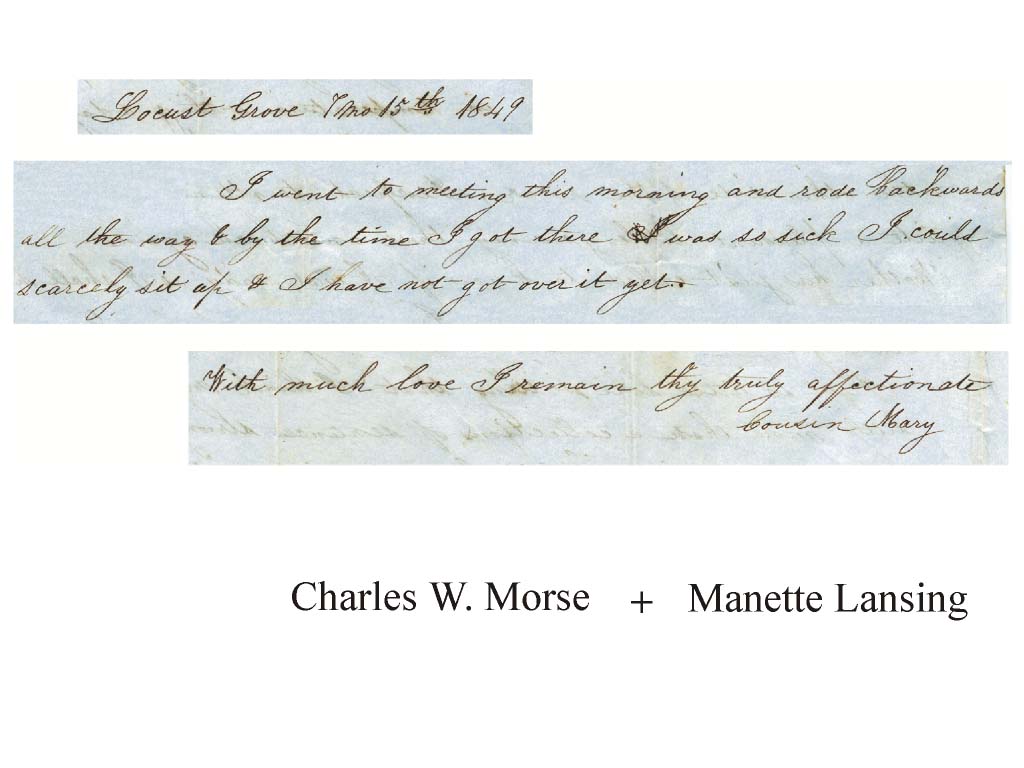 Locust Grove 7 mo 15th 1849
I went to meeting this morning and rode backwards
all the way & by the time I got there I was so sick I could
scarcely sit up & I have not got over it yet.
With much love I remain thy truly affectionate
Cousin Mary
Charles W. Morse + Manette Lansing